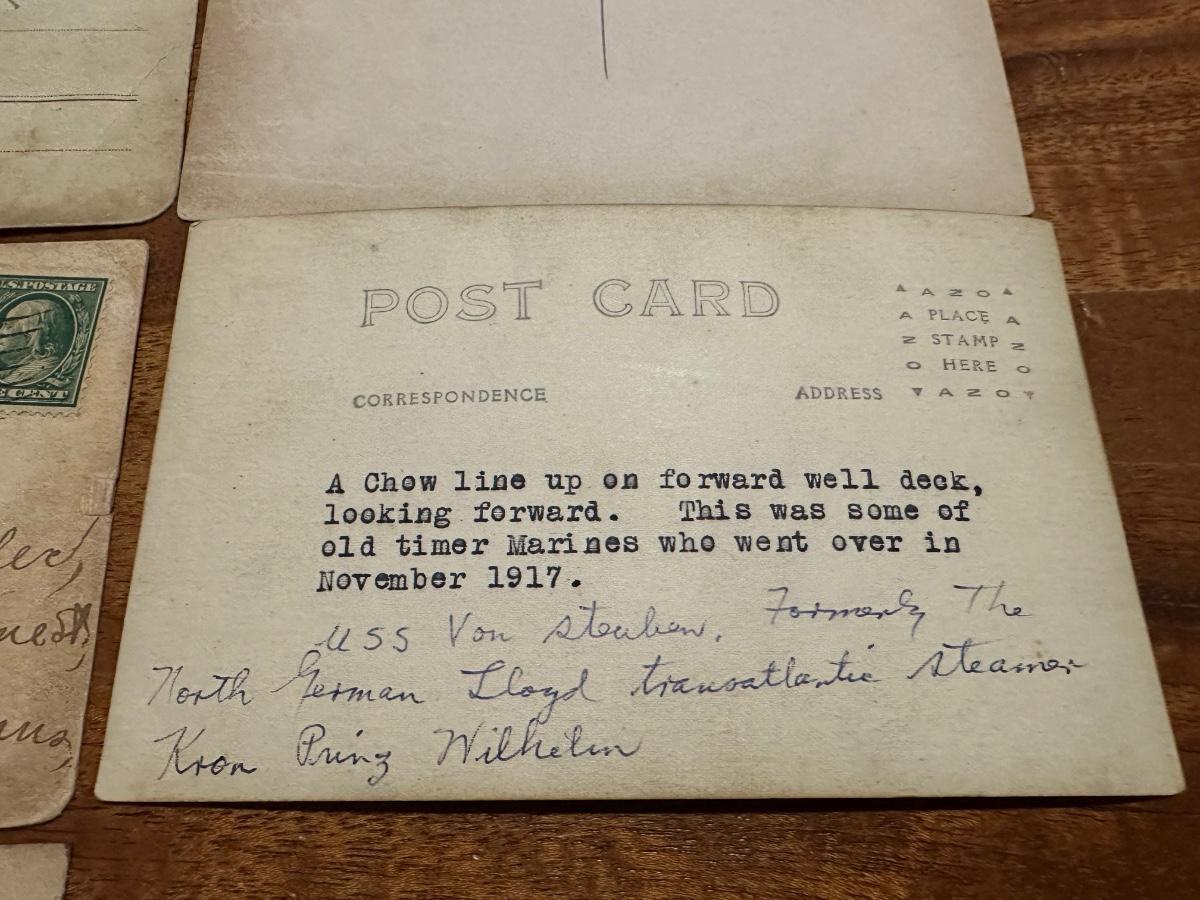 U.S.POSTAGE
CENT
POST CARD
AZO
A PLACE A
Z STAMP Z
O HERE O
CORRESPONDENCE
ADDRESS
AZO
A Chow line up on forward well deck,
looking forward. This was some of
old timer Marines who went over in
November 1917.
USS Von Steuben, Formerly The
North German Lloyd transatlantic steamer
Kron Prinz Wilhelm